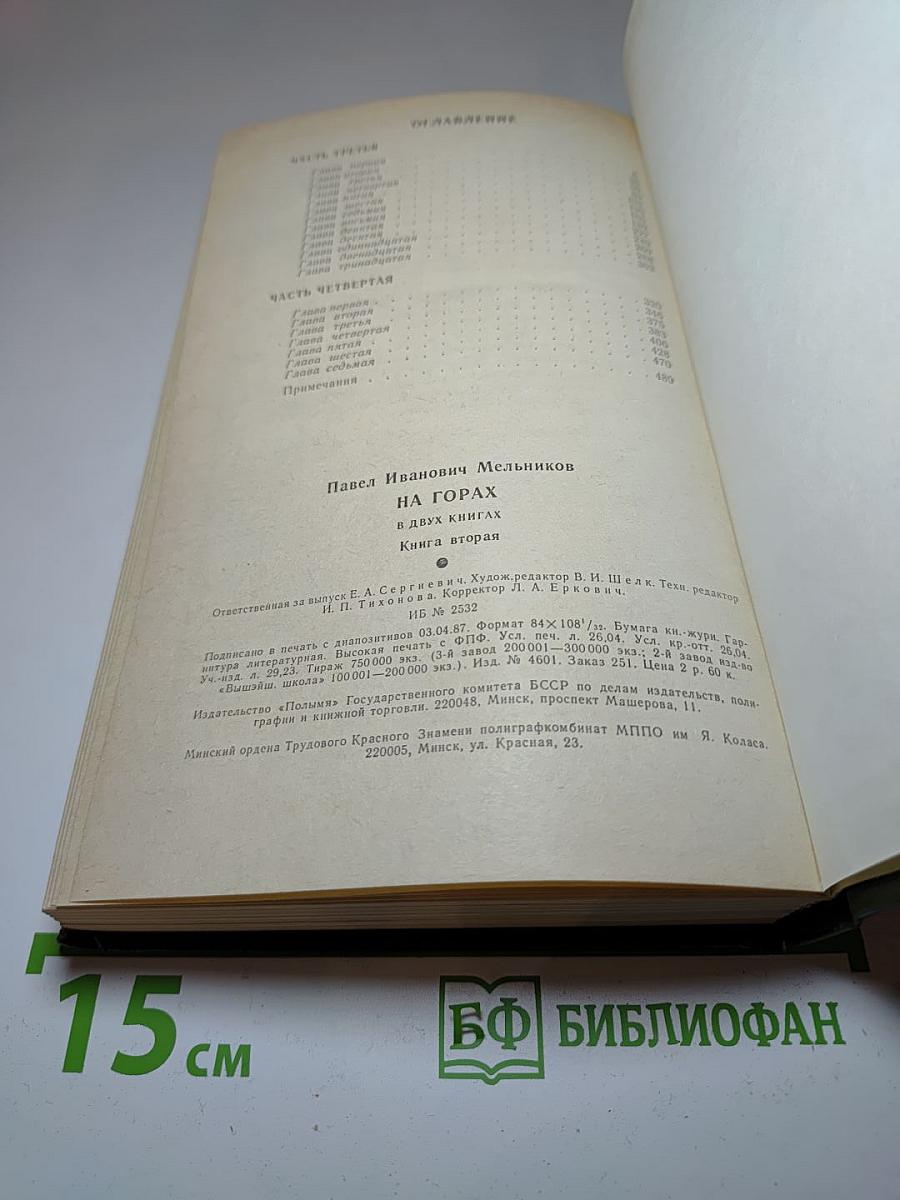 ОГЛАВЛЕНИЕ
ЧАСТЬ ТРЕТЬЯ
Глава первая
Глава вторая
Глава третья
Глава четвертая
Глава пятая
Глава шестая
Глава седьмая
Глава восьмая
Глава девятая
Глава десятая
Глава одиннадцатая
Глава двенадцатая
Глава тринадцатая
ЧАСТЬ ЧЕТВЕРТАЯ
Глава первая . . . . . . . . . 320
Глава вторая . . . . . . . . . 346
Глава третья . . . . . . . . . 375
Глава четвертая . . . . . . . . . 383
Глава пятая . . . . . . . . . 406
Глава шестая . . . . . . . . . 428
Глава седьмая . . . . . . . . . 470
Примечания . . . . . . . . . 480
Павел Иванович Мельников
НА ГОРАХ
В ДВУХ КНИГАХ
Книга вторая
Ответственная за выпуск Е. А. Сергиевич. Худож.редактор В. И. Шелк. Техн. редактор
И. П. Тихонова. Корректор Л. А. Еркович.
ИБ № 2532
Подписано в печать с диапозитивов 03.04.87. Формат 84×108¹/₃₂. Бумага кн.-журн. Гар-
нитура литературная. Высокая печать с ФПФ. Усл. печ. л. 26,04. Усл. кр.-отт. 26,04.
Уч.-изд. л. 29,23. Тираж 750 000 экз. (3-й завод 200 001—300 000 экз.; 2-й завод изд-во
«Вышэйш. школа» 100 001—200 000 экз.). Изд. № 4601. Заказ 251. Цена 2 р. 60 к.
Издательство «Полымя» Государственного комитета БССР по делам издательств, поли-
графии и книжной торговли. 220048, Минск, проспект Машерова, 11.
Минский ордена Трудового Красного Знамени полиграфкомбинат МППО им Я. Коласа.
220005, Минск, ул. Красная, 23.
15 см
БФ БИБЛИОФАН